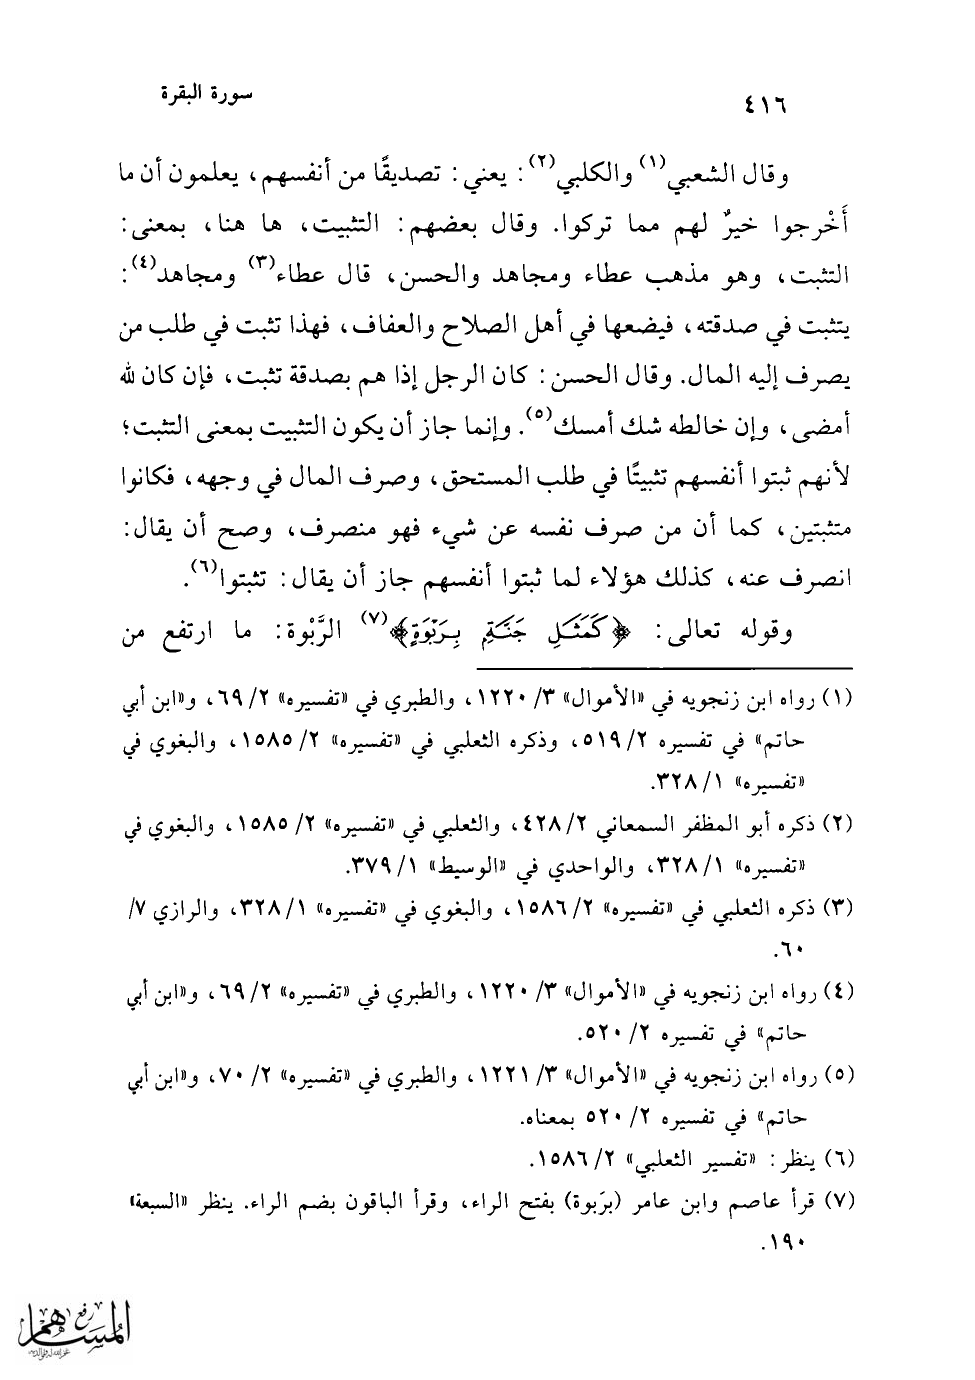 ٤١٦
سورة البقرة
وقال الشعبي(١) والكلبي(٢): يعني: تصديقًا من أنفسهم، يعلمون أن ما
أَخْرجوا خيرٌ لهم مما تركوا. وقال بعضهم: التثبيت، ها هنا، بمعنى:
التثبت، وهو مذهب عطاء ومجاهد والحسن، قال عطاء(٣) ومجاهد(٤):
يتثبت في صدقته، فيضعها في أهل الصلاح والعفاف، فهذا تثبت في طلب من
يصرف إليه المال. وقال الحسن: كان الرجل إذا هم بصدقة تثبت، فإن كان لله
أمضى، وإن خالطه شك أمسك(٥). وإنما جاز أن يكون التثبيت بمعنى التثبت؛
لأنهم ثبتوا أنفسهم تثبيتًا في طلب المستحق، وصرف المال في وجهه، فكانوا
متثبتين، كما أن من صرف نفسه عن شيء فهو منصرف، وصح أن يقال:
انصرف عنه، كذلك هؤلاء لما ثبتوا أنفسهم جاز أن يقال: تثبتوا(٦).
وقوله تعالى: ﴿كَمَثَلِ جَنَّةٍ بِرَبْوَةٍ﴾(٧) الرَّبْوة: ما ارتفع من
(١) رواه ابن زنجويه في «الأموال» ٣/ ١٢٢٠، والطبري في «تفسيره» ٢/ ٦٩، و«ابن أبي
حاتم» في تفسيره ٢/ ٥١٩، وذكره الثعلبي في «تفسيره» ٢/ ١٥٨٥، والبغوي في
«تفسيره» ١/ ٣٢٨.
(٢) ذكره أبو المظفر السمعاني ٢/ ٤٢٨، والثعلبي في «تفسيره» ٢/ ١٥٨٥، والبغوي في
«تفسيره» ١/ ٣٢٨، والواحدي في «الوسيط» ١/ ٣٧٩.
(٣) ذكره الثعلبي في «تفسيره» ٢/ ١٥٨٦، والبغوي في «تفسيره» ١/ ٣٢٨، والرازي ٧/
٦٠.
(٤) رواه ابن زنجويه في «الأموال» ٣/ ١٢٢٠، والطبري في «تفسيره» ٢/ ٦٩، و«ابن أبي
حاتم» في تفسيره ٢/ ٥٢٠.
(٥) رواه ابن زنجويه في «الأموال» ٣/ ١٢٢١، والطبري في «تفسيره» ٢/ ٧٠، و«ابن أبي
حاتم» في تفسيره ٢/ ٥٢٠ بمعناه.
(٦) ينظر: «تفسير الثعلبي» ٢/ ١٥٨٦.
(٧) قرأ عاصم وابن عامر (برَبوة) بفتح الراء، وقرأ الباقون بضم الراء. ينظر «السبعة»
١٩٠.
رفع
المساهم